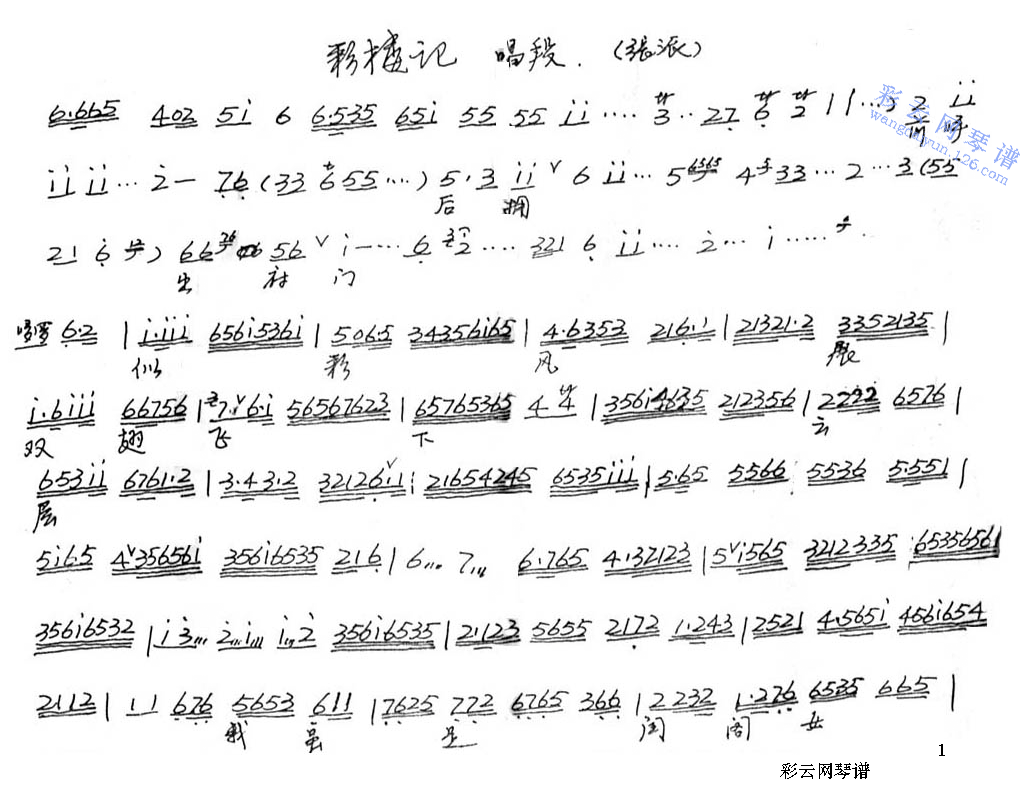 彩楼记 唱段.（張派）
6.665 402 5i 6 6.535 65i 55 55 ii ···· 3 ·· 27 6 2 11 ···） 2 ii
前 呼
彩云网琴谱
wangcaiyun.126.com
ii ii ··· 2 — 76 (33 6 55 ···) 5.3 ii ∨ 6 ii ··· 5 6365 4 5 33 ··· 2 ··· 3 (55
后 拥
21 6 ) 66 56 ∨ i — ··· 6 2 ···· 321 6 ii ···· 2 ··· i ·····
出 府 门
6.2 | i.iii 656i536i | 5065 34356i65 | 4.6353 216.1 | 21321.2 3352135 |
似 彩 风 展
i.6iii 66756 | 7.∨6.i 56567623 | 65765365 4 4 | 356i4635 212356 | 2222 6576 |
双 翅 飞 下 云
653ii 6761.2 | 3.43.2 32126.∨1 | 21654245 6535iii | 5.65 5566 5536 5.551 |
层
5i6.5 4∨35656i 356i6535 216 | 6... 7... 6.765 4.32123 | 5∨i565 3212335 6535656i
356i6532 | i 3... 2...i... i..2 356i6535 | 2.123 5655 2172 1.243 | 2521 4.565i 456i654
2112 | 11 676 5653 611 | 7625 772 6765 366 | 2232 1.276 6535 665 |
我 虽 是 闺 阁 女
1
彩云网琴谱